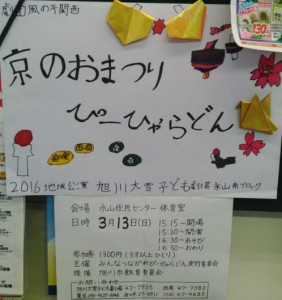 劇団風の子関西
京のおまつり
ぴーひゃらどん
2016地域公演 旭川大雪子ども劇場永山南ブロック
会場 永山住民センター 体育室
日時 3月13日(日) 15:15〜開場
15:30〜開演
16:30〜あそび
16:50〜おわり
参加費 1300円 (3才以上ひとり)
主催 みんなつながれぴーひゃらどん実行委員会
後援 旭川市教育委員会
130